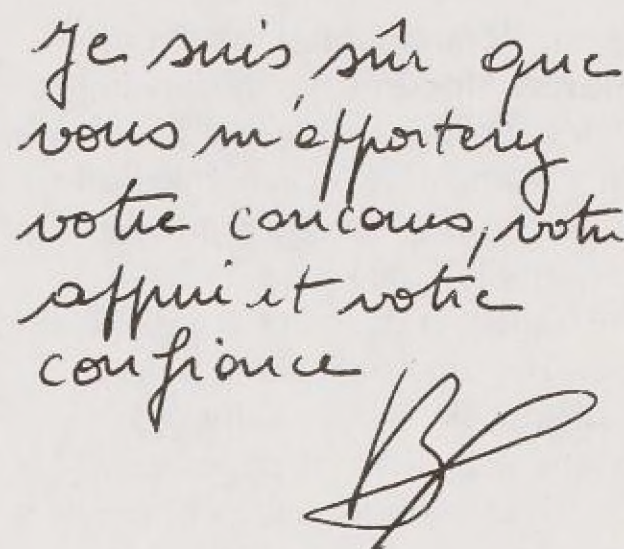 Je suis sûr que
vous m'apporterez
votre concours, votre
appui et votre
confiance